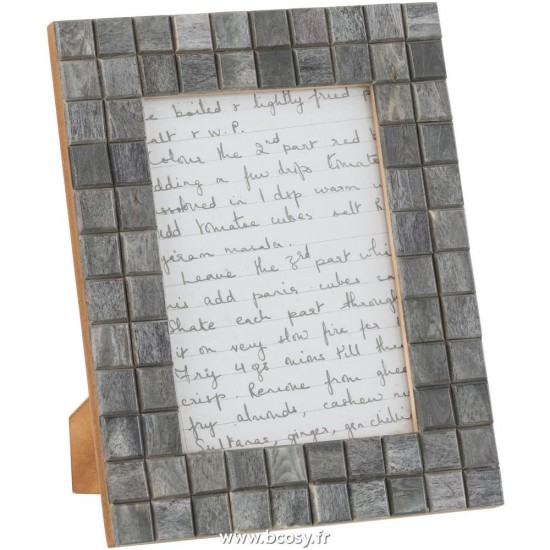 e boiled & lightly fried
alt & W.P.
Colour the 2nd part red b
adding a few drops tomato
dissolved in 1 dsp warm w
add tomatoe cubes salt
garam masala.
Leave the 3rd part whi
this add panir cubes
Shake each part through
it on very slow fire for
Fry 4 onions till the
crisp. Remove from ghee
fry almonds, cashew nu
Sultanas, ginger, gr. chilies
www.bcosy.fr